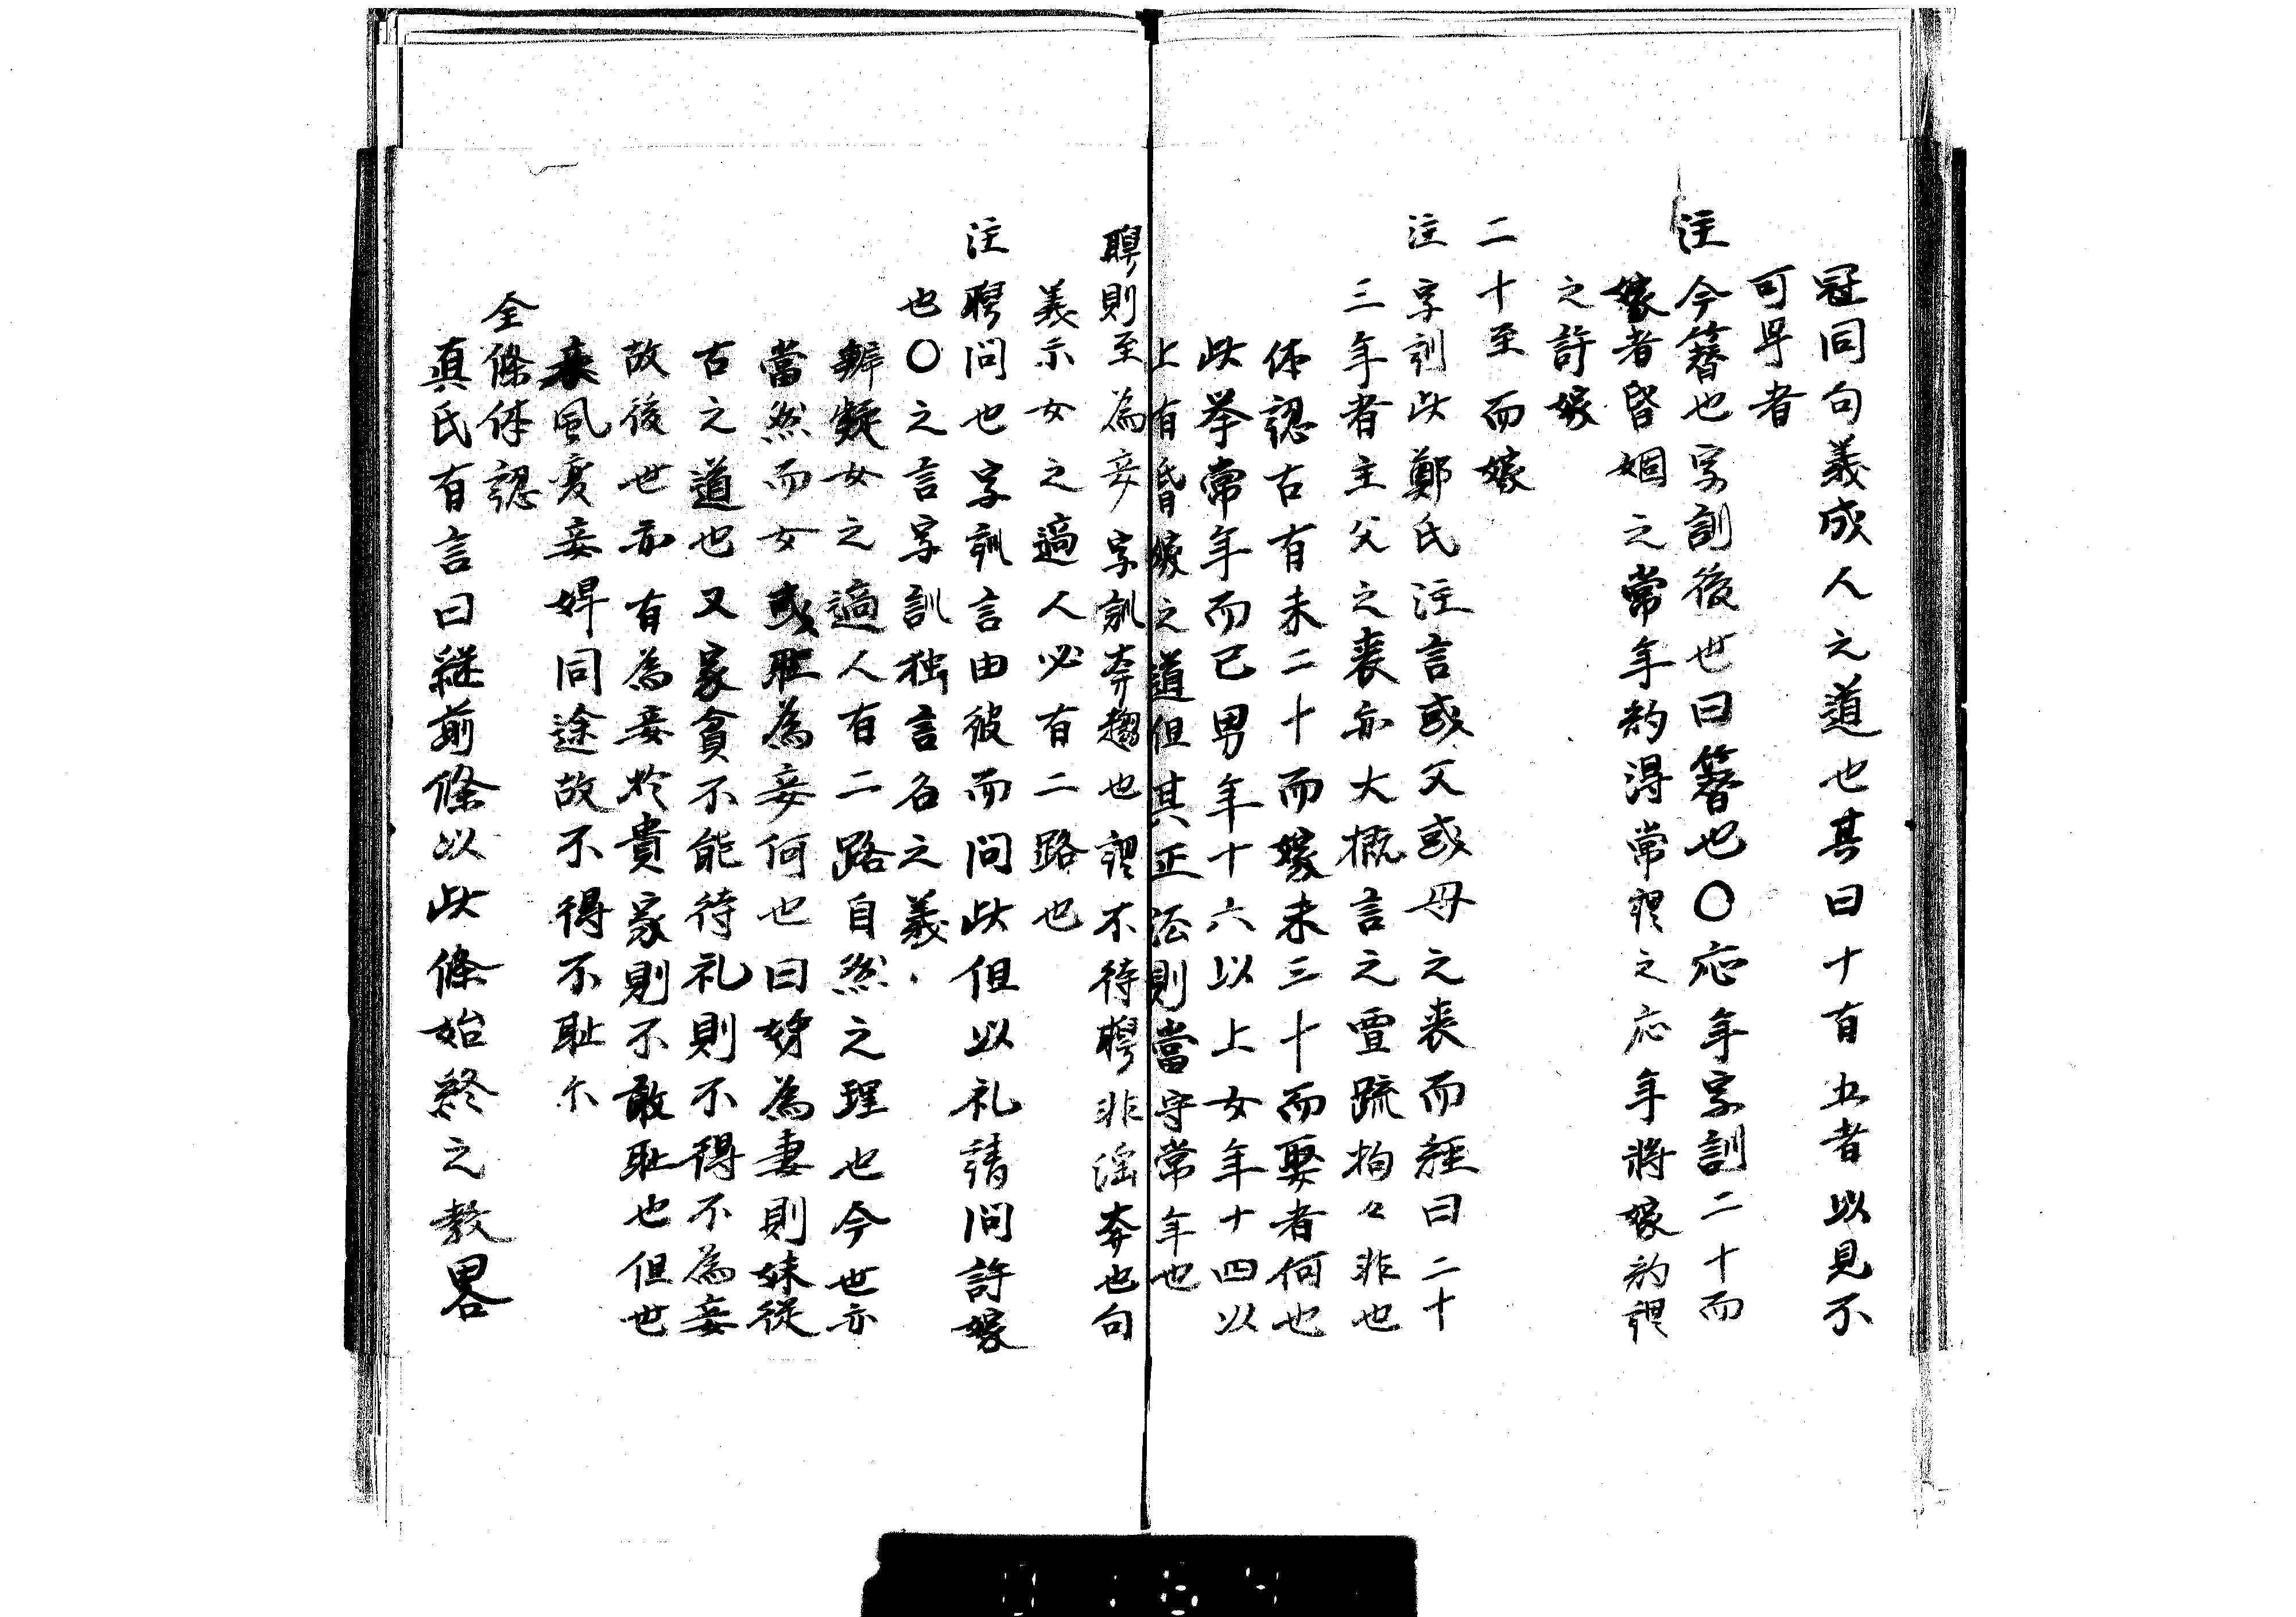 冠同句義成人之道也其曰十有五者以見不
可早者
注今簪也字訓後世曰簪也〇応年字訓二十而
嫁者昏姻之常年約得常理之応年将嫁約理
之許嫁
二十至而嫁
注字訓此鄭氏注言或父或母之喪而経曰二十
三年者主父之喪亦大概言之耳疏拘々非也
体認古有未二十而嫁未三十而娶者何也
此挙常年而已男年十六以上女年十四以
上有昏嫁之道但其正法則當守常年也
聘則至為妾字訓奔趨也謂不待聘非淫奔也句
義示女之適人必有二路也
注聘問也字訓言由彼而問此但以礼請問許嫁
也〇之言字訓独言名之義
辨疑女之適人有二路自然之理也今世亦
當然而女或耻為妾何也曰姉為妻則妹従
古之道也又家貧不能待礼則不得不為妾
故後世亦有為妾於貴家則不敢耻也但世
衰風変妾婢同途故不得不耻尓
全條体認
真氏有言曰継前條以此條始終之教畧